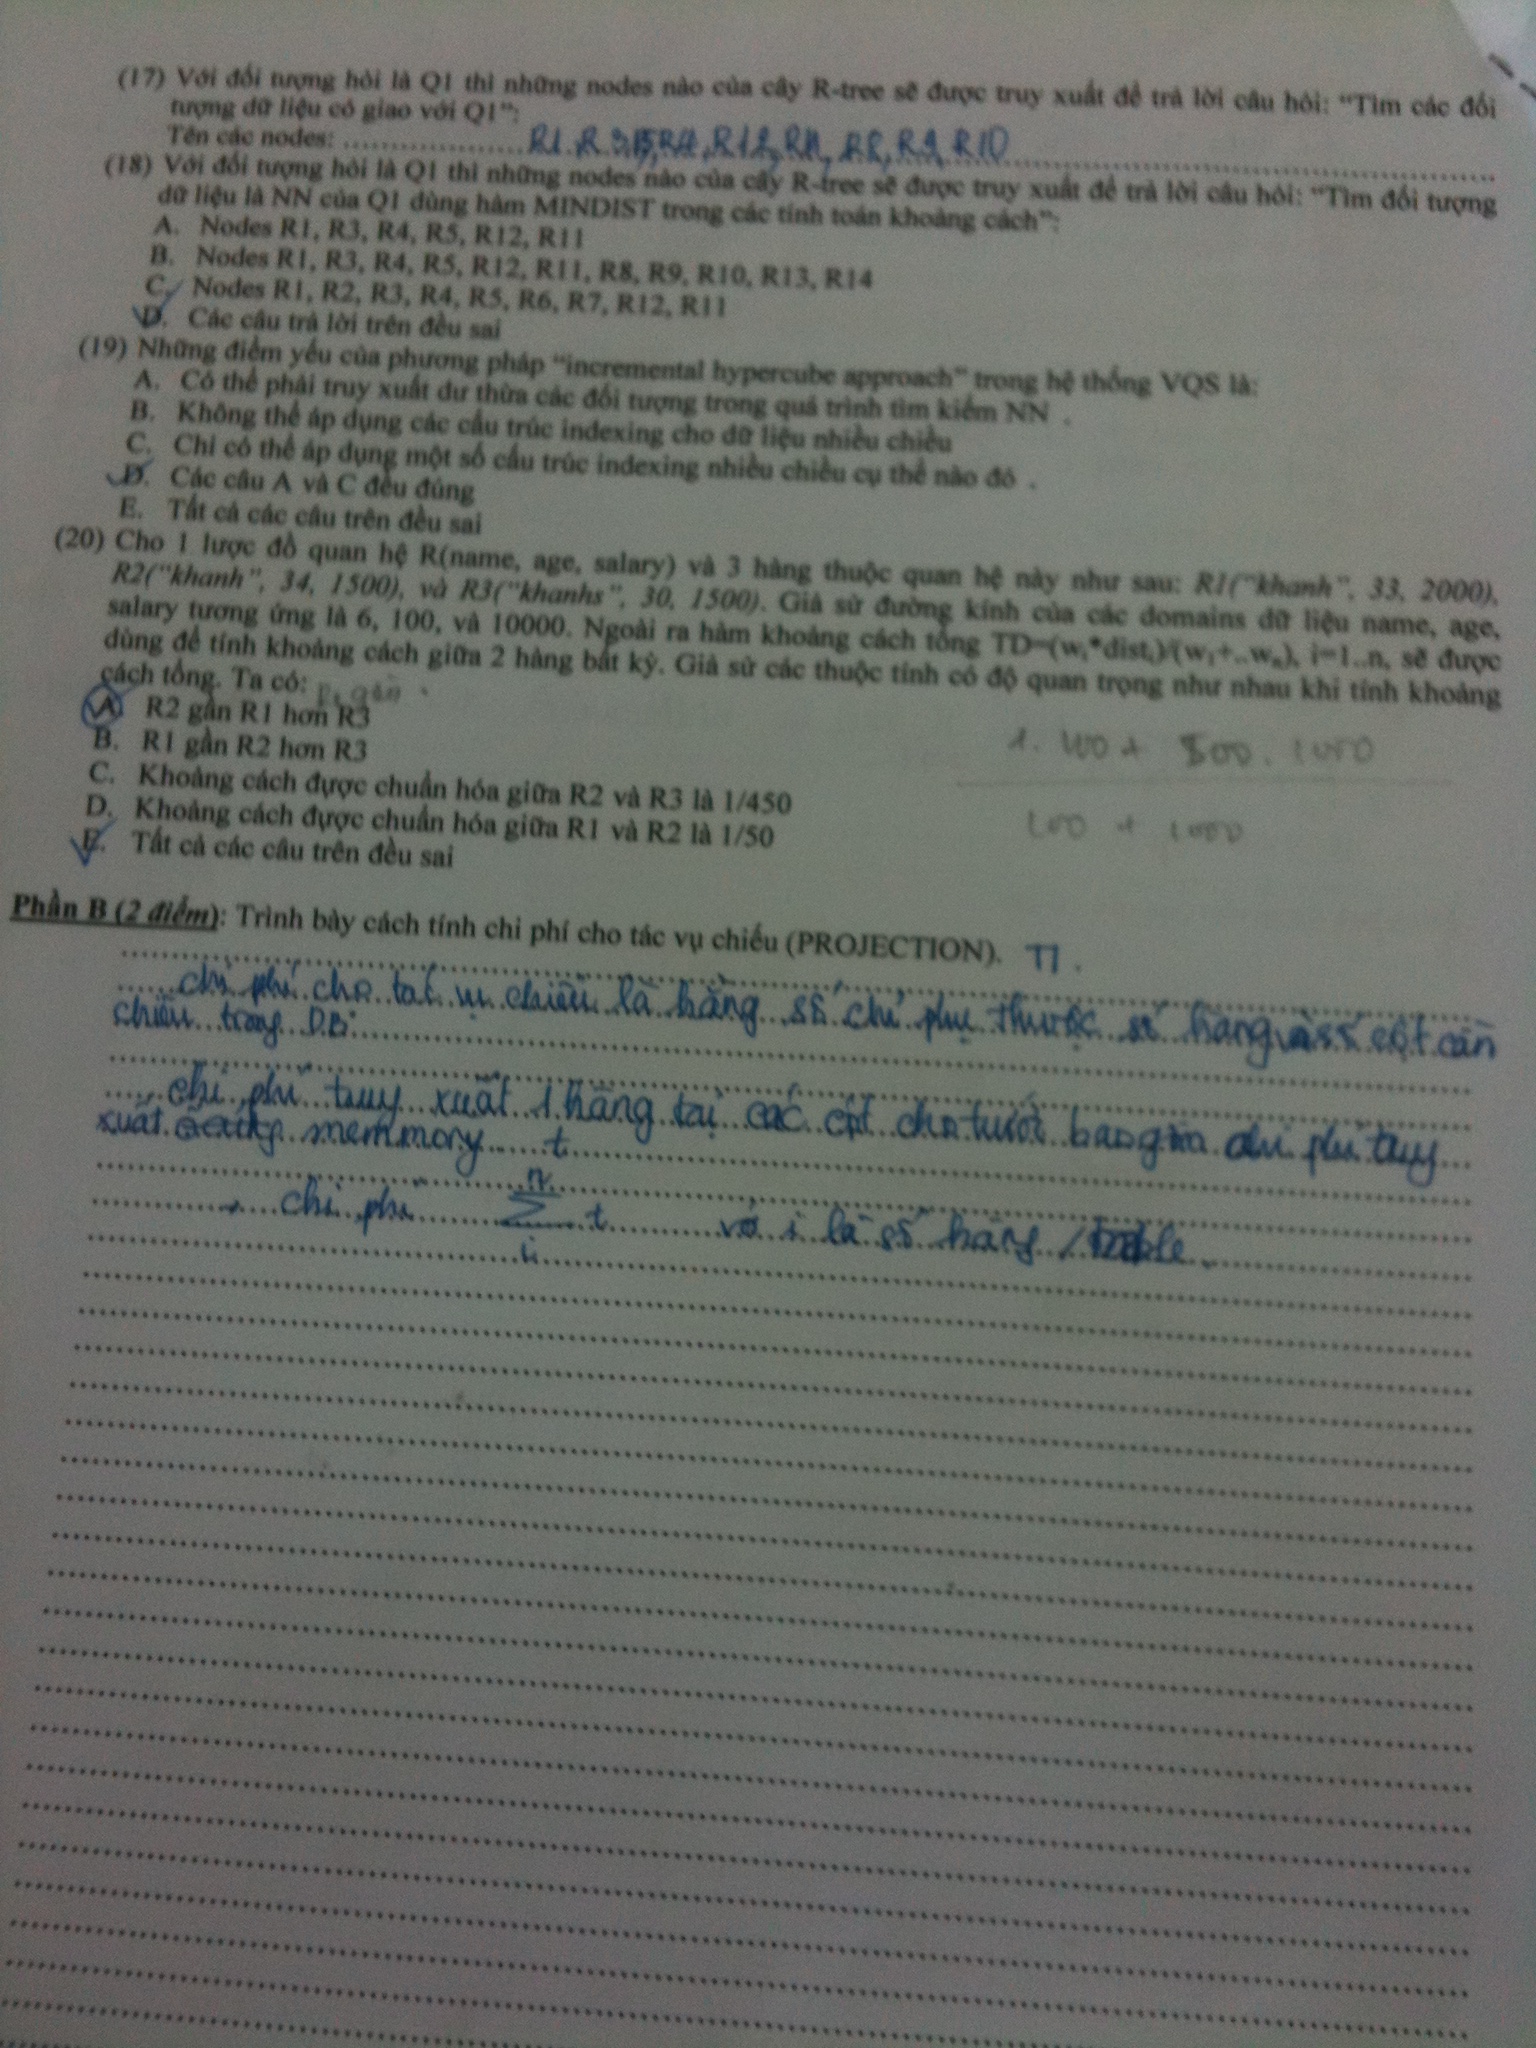 (17) Với đối tượng hỏi là Q1 thì những nodes nào của cây R-tree sẽ được truy xuất để trả lời câu hỏi: "Tìm các đối
tượng dữ liệu có giao với Q1":
Tên các nodes: R1, R3, R4, R12, R11, R8, R9, R10
(18) Với đối tượng hỏi là Q1 thì những nodes nào của cây R-tree sẽ được truy xuất để trả lời câu hỏi: "Tìm đối tượng
dữ liệu là NN của Q1 dùng hàm MINDIST trong các tính toán khoảng cách":
A. Nodes R1, R3, R4, R5, R12, R11
B. Nodes R1, R3, R4, R5, R12, R11, R8, R9, R10, R13, R14
C. Nodes R1, R2, R3, R4, R5, R6, R7, R12, R11
D. Các câu trả lời trên đều sai
(19) Những điểm yếu của phương pháp "incremental hypercube approach" trong hệ thống VQS là:
A. Có thể phải truy xuất dư thừa các đối tượng trong quá trình tìm kiếm NN .
B. Không thể áp dụng các cấu trúc indexing cho dữ liệu nhiều chiều
C. Chỉ có thể áp dụng một số cấu trúc indexing nhiều chiều cụ thể nào đó .
D. Các câu A và C đều đúng
E. Tất cả các câu trên đều sai
(20) Cho 1 lược đồ quan hệ R(name, age, salary) và 3 hàng thuộc quan hệ này như sau: R1("khanh", 33, 2000),
R2("khanh", 34, 1500), và R3("khanhs", 30, 1500). Giả sử đường kính của các domains dữ liệu name, age,
salary tương ứng là 6, 100, và 10000. Ngoài ra hàm khoảng cách tổng TD=(wi*disti)/(w1+..wn), i=1..n, sẽ được
dùng để tính khoảng cách giữa 2 hàng bất kỳ. Giả sử các thuộc tính có độ quan trọng như nhau khi tính khoảng
cách tổng. Ta có:
A. R2 gần R1 hơn R3
B. R1 gần R2 hơn R3
C. Khoảng cách được chuẩn hóa giữa R2 và R3 là 1/450
D. Khoảng cách được chuẩn hóa giữa R1 và R2 là 1/50
E. Tất cả các câu trên đều sai
1. 100 + 500. 1000
100 + 1000
Phần B (2 điểm): Trình bày cách tính chi phí cho tác vụ chiếu (PROJECTION). π.
chi phí cho tác vụ chiếu là hằng số chỉ phụ thuộc số hàng và số cột cần
chiếu trong DB
chi phí truy xuất 1 hàng tại các cột cho trước bao gồm chi phí truy
xuất memmory t
chi phí Σ t với i là số hàng / table.
n
i